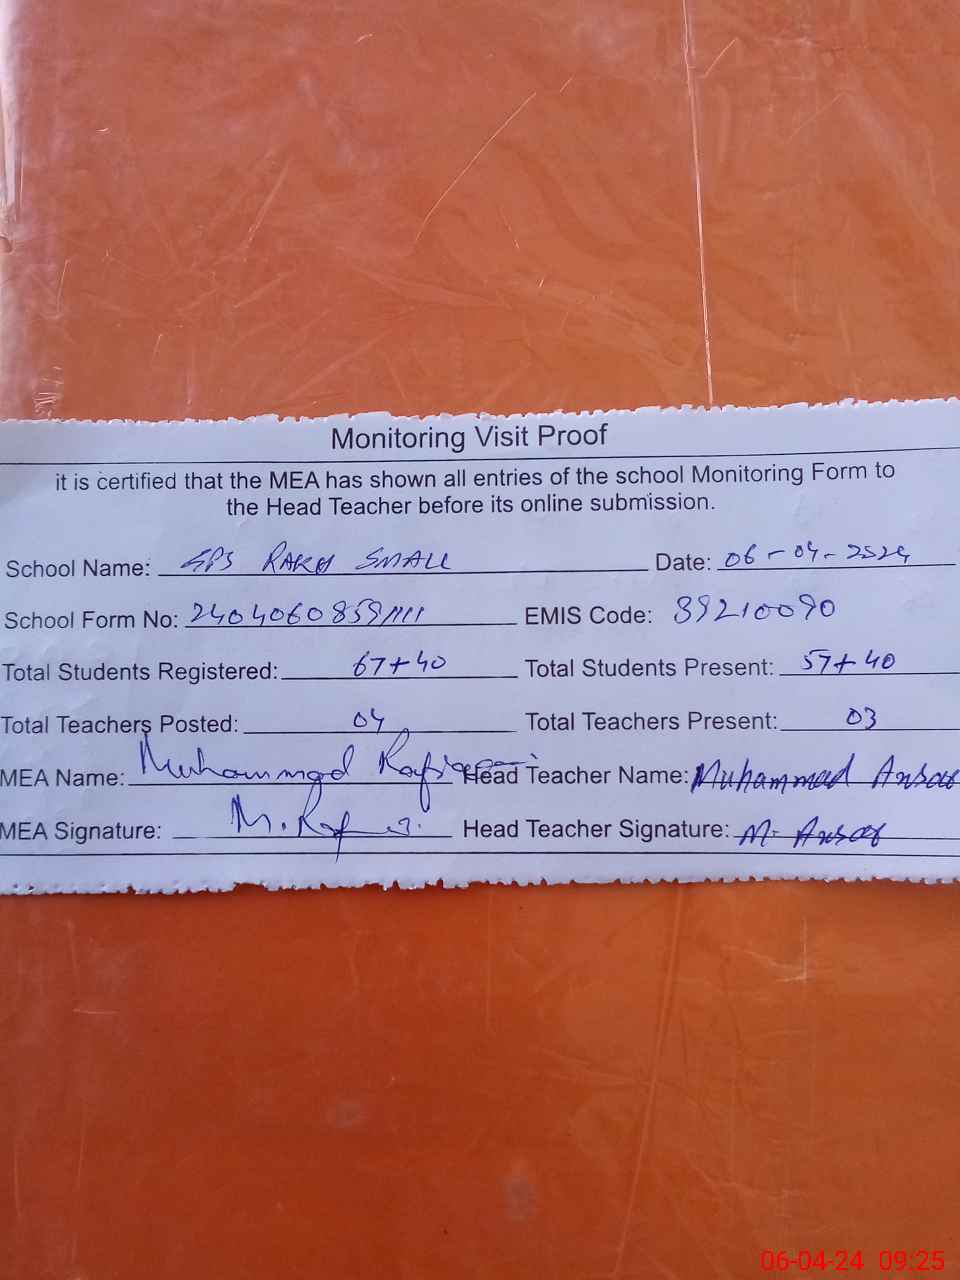 Monitoring Visit Proof
it is certified that the MEA has shown all entries of the school Monitoring Form to
the Head Teacher before its online submission.
School Name: GPS RAKH SMALL Date: 06-04-2024
School Form No: 2404060859111 EMIS Code: 39210090
Total Students Registered: 67+40 Total Students Present: 57+40
Total Teachers Posted: 04 Total Teachers Present: 03
MEA Name: Muhammad Head Teacher Name: Muhammad Ansar
MEA Signature: Head Teacher Signature: M. Ansar
06-04-24 09:25